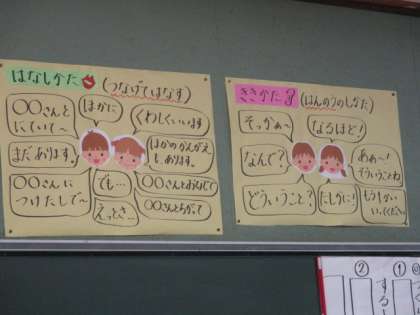 はなしかた
(つなげてはなす)
〇〇さんと
にていて～
ほかに
くわしくいいます
まだあります。
ほかのかんがえ
も、あります。
〇〇さんに
つけたしで～
でも…
〇〇さんとおなじで
えっとさ…
〇〇さんとちがって
ききかた
(はんのうのしかた)
そっかぁ～
なるほど!
なんで?
あぁ～!
そういうことね
どういうこと?
たしかに!
もうしかい
いってください
②
①
する